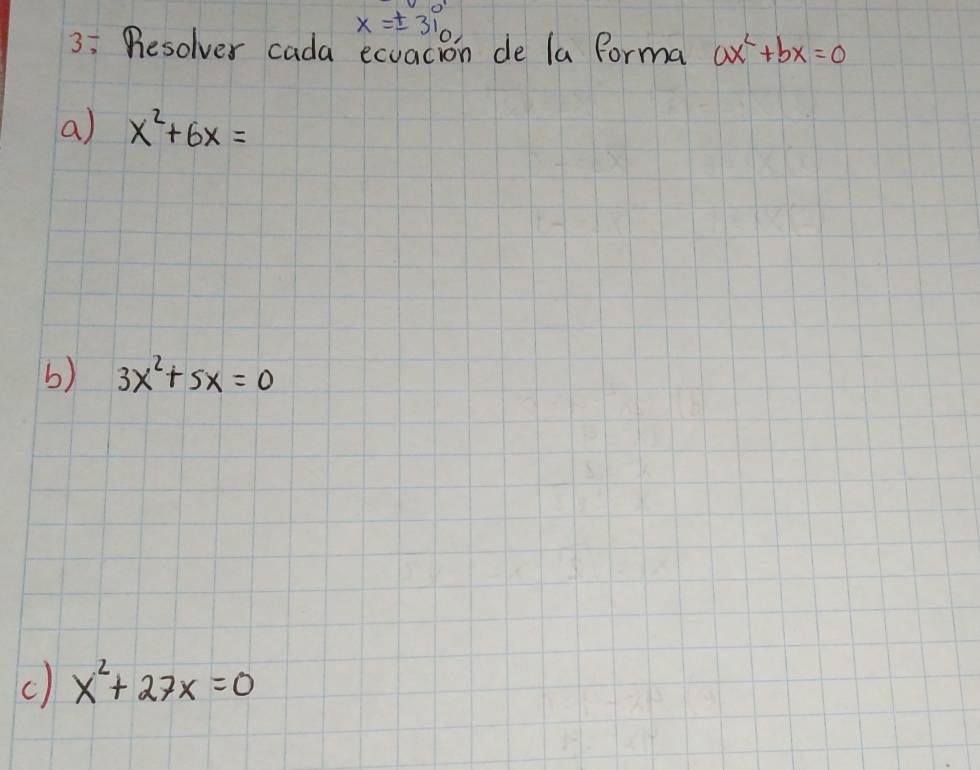 x = ± 31
3.- Resolver cada ecuación de la forma ax² + bx = 0
a) x² + 6x =
b) 3x² + 5x = 0
c) x² + 27x = 0